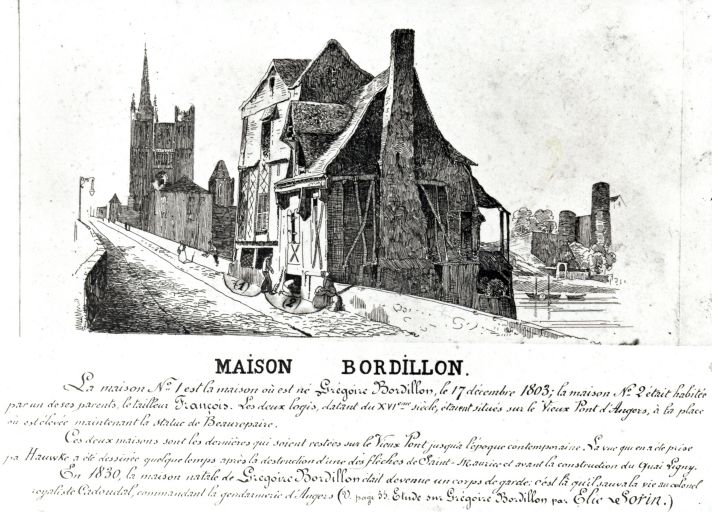 MAISON BORDILLON.
La maison No. 1 est la maison où est né Grégoire Bordillon, le 17 décembre 1803; la maison No. 2 était habité
par un de ses parents, le tailleur François. Les deux logis, datant du XVIeme siècle, étaient situés sur le Vieux Pont d'Angers, à la place
où est élevée maintenant la statue de Beaurepaire.
Ces deux maisons sont les dernières qui soient restées sur le Vieux Pont jusqu'à l'époque contemporaine. La vue qui en a été prise
par Hawke a été dessinée quelque temps après la destruction d'une des flèches de Saint-Maurice et avant la construction du Quai Ligny.
En 1830, la maison natale de Grégoire Bordillon était devenue un corps de garde: c'est là qu'il sauva la vie au colonel
royaliste Cadoudal, commandant la gendarmerie d'Angers (V. page 33. Etude sur Grégoire Bordillon par Elie Sorin.)